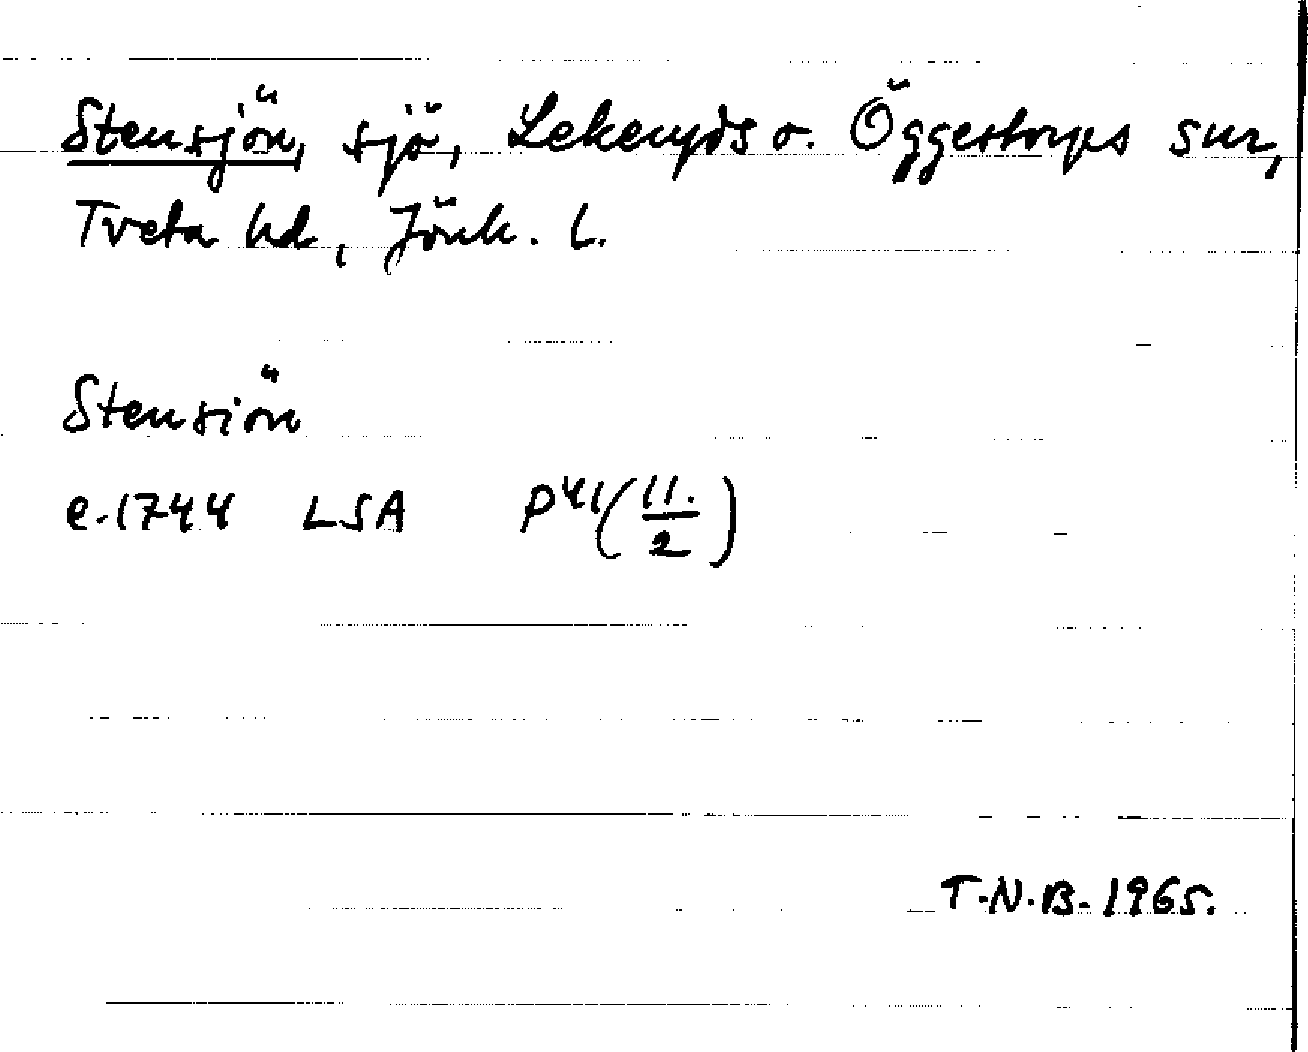 Stensjön, sjö, Lekeryds o. Öggestorps snr,
Tveta hd, Jönk. l.
Stensiön
e.1744 LSA P41(11./2)
T.N.B. 1965.